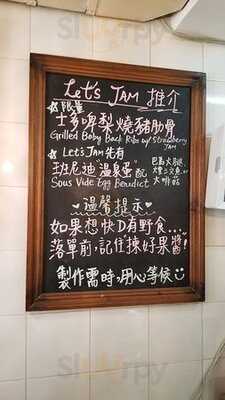 Let's JAM 推介
☆限量
士多啤梨燒豬肋骨
Grilled Baby Back Ribs w/ Strawberry
JAM
☆Let's JAM先有
班尼迪"溫泉蛋"配
巴馬火腿
Sous Vide Egg Benedict
溫馨提示
如果想快D有野食...
落單前,記住"揀好果醬"!
製作需時,用心等候